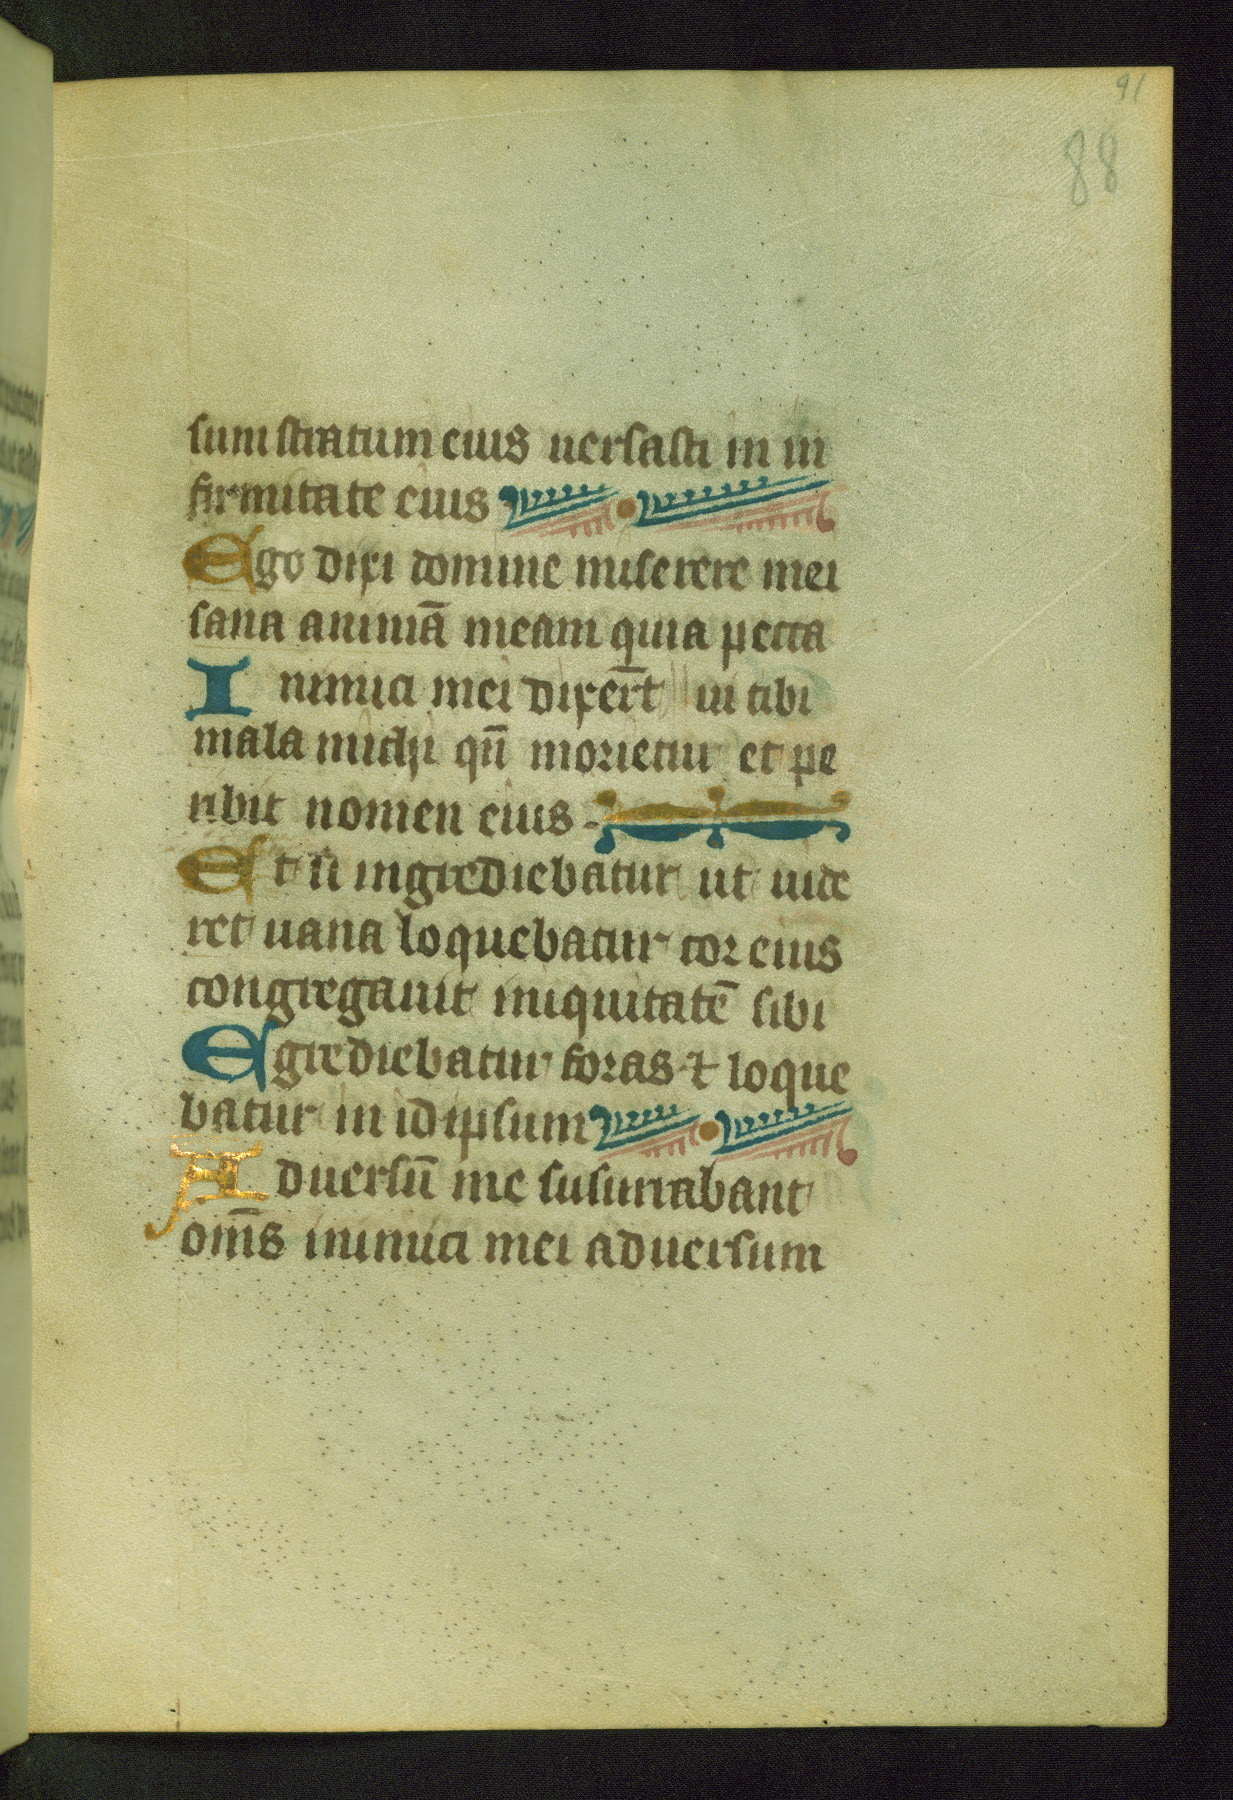 91
88
sum stratum eius uersasti in in
firmitate eius
Ego dixi domine miserere mei
sana animā meam quia pecca
Inimici mei dixer̄t ui tibi
mala michi qn̄ morietur et pe
ribit nomen eius
Et si ingrediebatur ut uide
ret uana loquebatur cor eius
congregauit iniquitatē sibi
Egrediebatur foras ⁊ loque
batur in idipsum
Aduersū me susurrabant
om̄s inimici mei aduersum